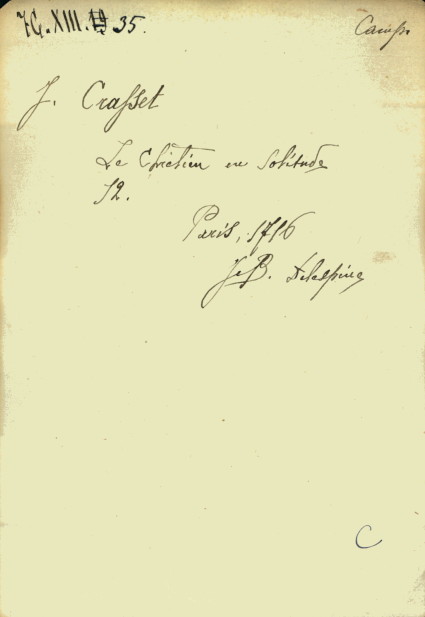 7G. XIII. 19 35.
Camp.
J. Crasset
Le Chrétien en Solitude
12.
Paris, 1716
J. B. Delespine
C